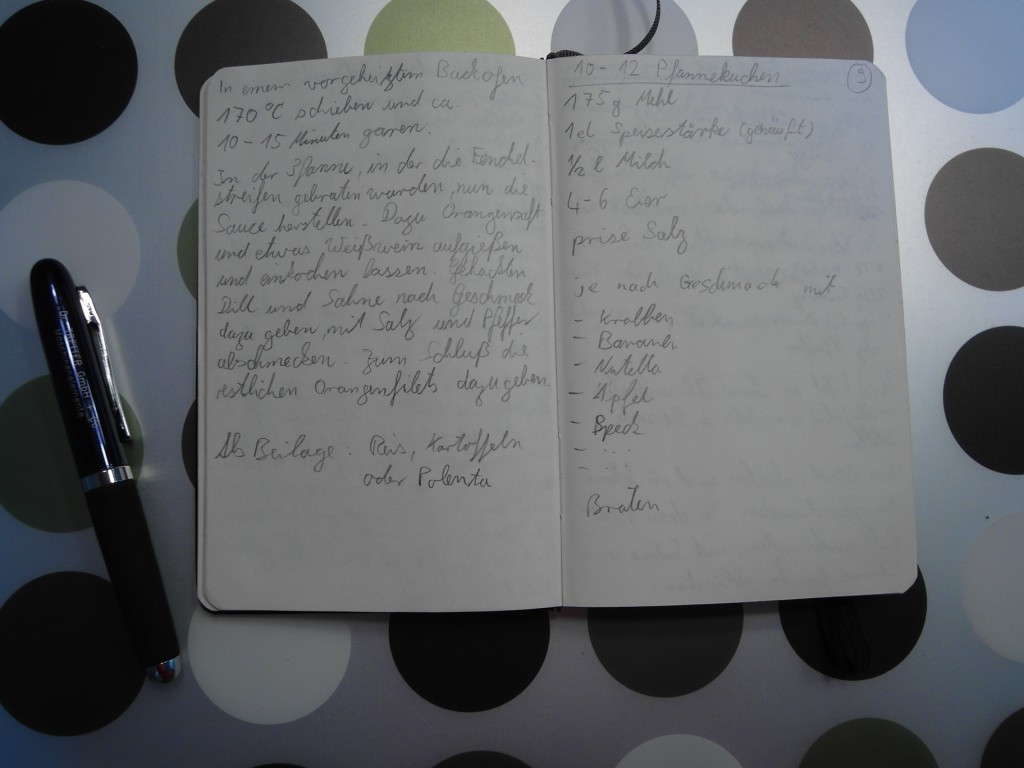 In einem vorgeheiztem Backofen
170°C schieben und ca.
10-15 Minuten garen.
In der Pfanne, in der die Fenchel-
streifen gebraten wurden, nun die
Sauce herstellen. Dazu Orangensaft
und etwas Weißwein aufgießen
und einkochen lassen. Gehackten
Dill und Sahne nach Geschmack
dazu geben, mit Salz und Pfeffer
abschmecken. Zum Schluß die
restlichen Orangenfilets dazu geben.
Als Beilage: Reis, Kartoffeln
oder Polenta
10-12 Pfannekuchen
9
175g Mehl
1el Speisestärke (gehäuft)
1/2 l Milch
4-6 Eier
prise Salz
je nach Geschmack mit
- Krabben
- Bananen
- Nutella
- Äpfel
- Speck
- ...
- ...
Braten